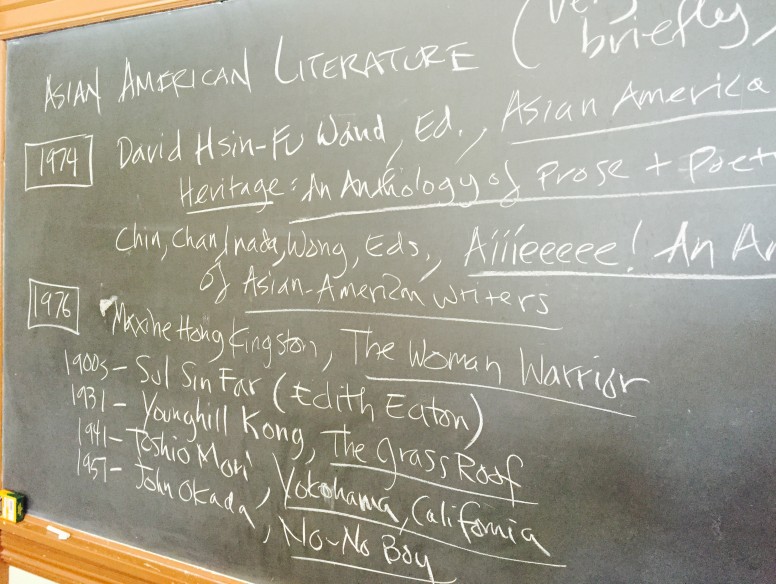 ASIAN AMERICAN LITERATURE (very briefly,
1974 David Hsin-Fu Wand, Ed., Asian America
Heritage: An Anthology of Prose + Poet
Chin, Chan, Inada, Wong, Eds., Aiiieeeee! An An
of Asian-American Writers
1976 Maxine Hong Kingston, The Woman Warrior
1900s - Sui Sin Far (Edith Eaton)
1931 - Younghill Kong, The Grass Roof
1941 - Toshio Mori, Yokohama, California
1957 - John Okada, No-No Boy